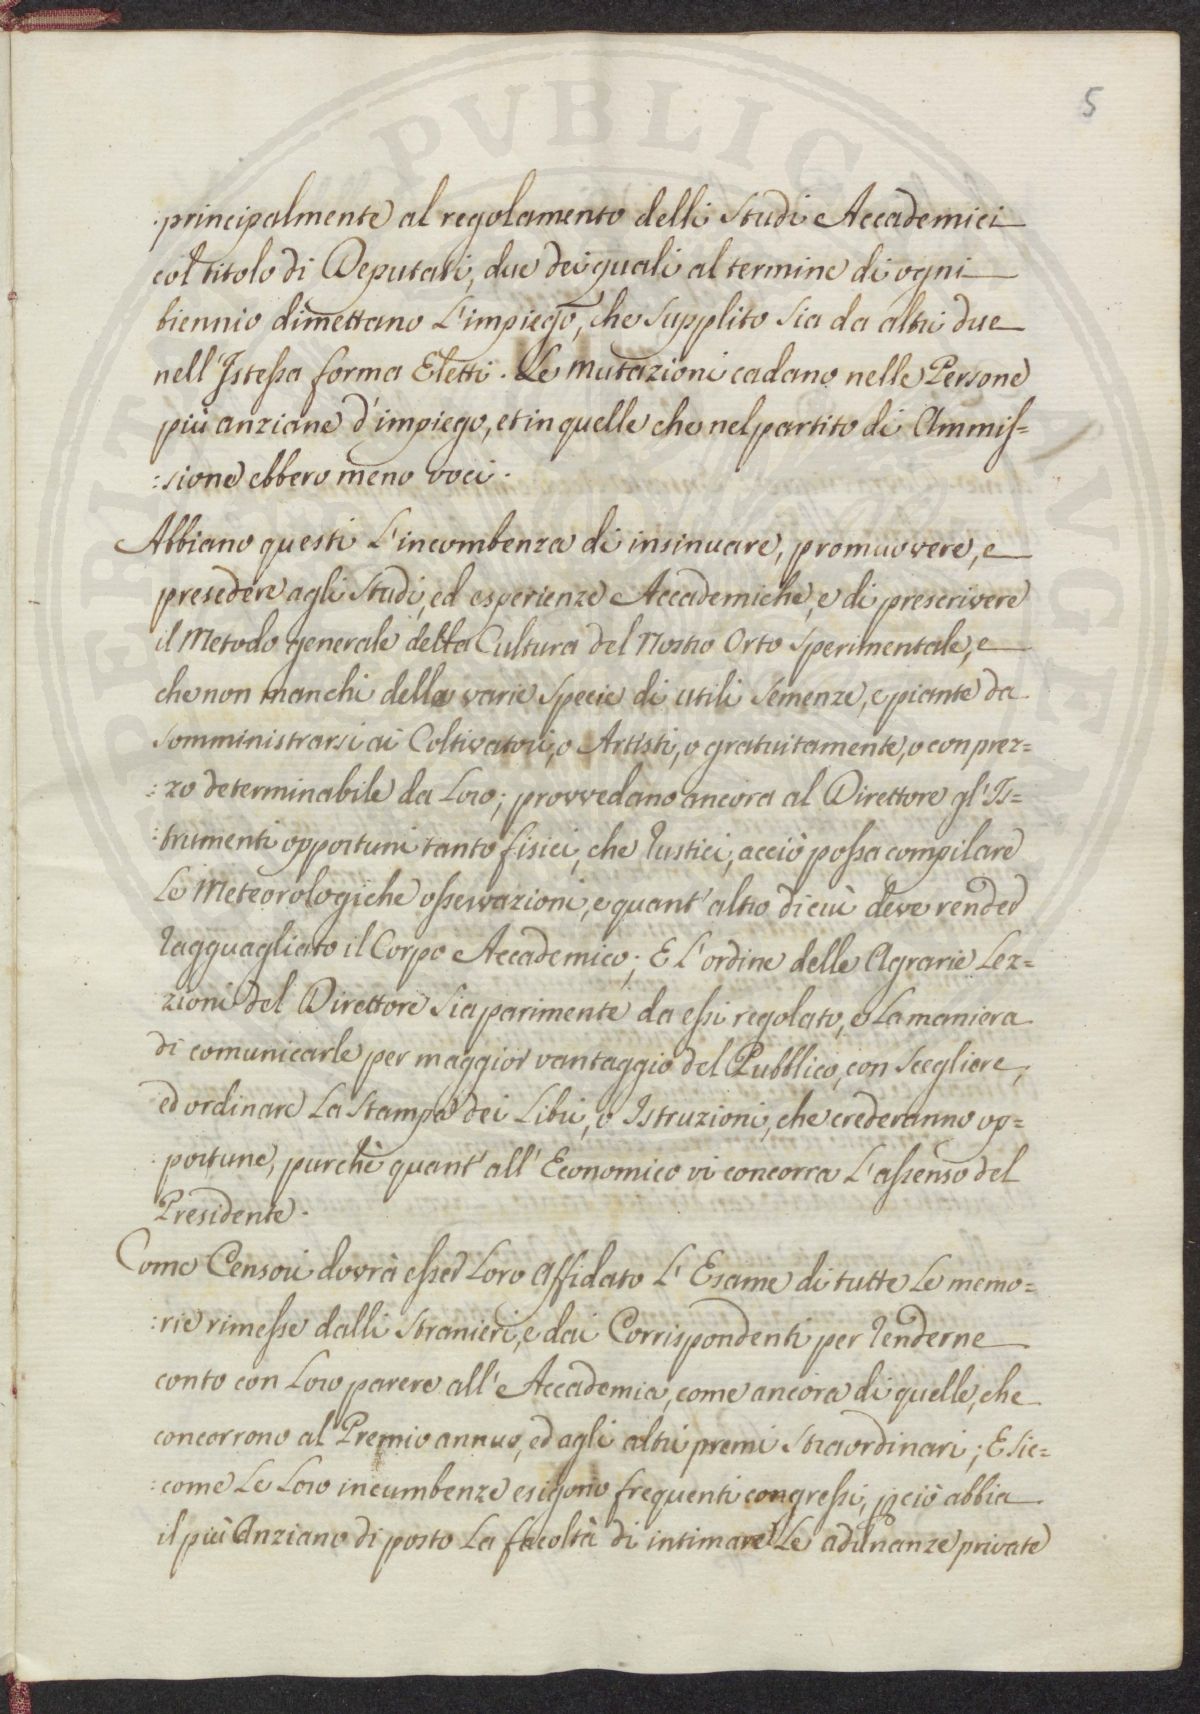 5
principalmente al regolamento delli Studi Accademici
col titolo di Deputati, due dei quali al termine di ogni
biennio dimettano L'impiego, che Supplito Sia da altri due
nell'Istessa forma Eletti. Le mutazioni cadano nelle Persone
più anziane d'impiego, et in quelle che nel partito di Ammis=
:sione ebbero meno voci.
Abbiano questi L'incumbenza di insinuare, promuovere, e
presedere agli Studi, ed esperienze Accademiche, e di prescrivere
il Metodo generale della Cultura del Nostro Orto Sperimentale, e
che non manchi delle varie Specie di utili Semenze, e piante da
Somministrarsi ai Coltivatori, o Artisti, o gratuitamente, o con prez=
:zo determinabile da Loro; provvedano ancora al Direttore gl'Is=
:trumenti opportuni tanto fisici, che Rustici, acciò possa compilare
Le Meteorologiche osservazioni, e quant'altro di cui deve render
Ragguagliato il Corpo Accademico; E L'ordine delle Agrarie Lez=
zioni del Direttore Sia parimente da essi regolato, e La maniera
di comunicarle per maggior vantaggio del Pubblico, con Scegliere,
ed ordinare La Stampa dei Libri, o Istruzioni, che crederanno op=
:portune, purchè quant'all'Economico vi concorra L'assenso del
Presidente.
Come Censori dovrà esser Loro Affidato L'Esame di tutte Le memo=
:rie rimesse dalli Stranieri, e dai Corrispondenti per Renderne
conto con Loro parere all'Accademia, come ancora di quelle, che
concorrono al Premio annuo, ed agli altri premi Straordinari; E Sic=
:come Le Loro incumbenze esigono frequenti congressi, pciò abbia
il più Anziano di posto La facoltà di intimare Le adunanze private
PVBLIC